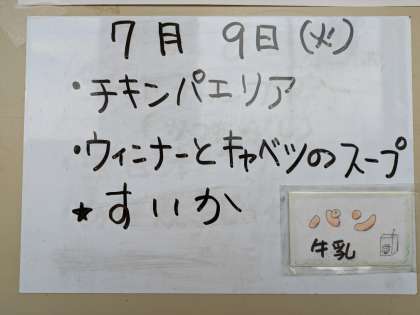 7月 9日(火)
・チキンパエリア
・ウィンナーとキャベツのスープ
★ すいか
パン
牛乳